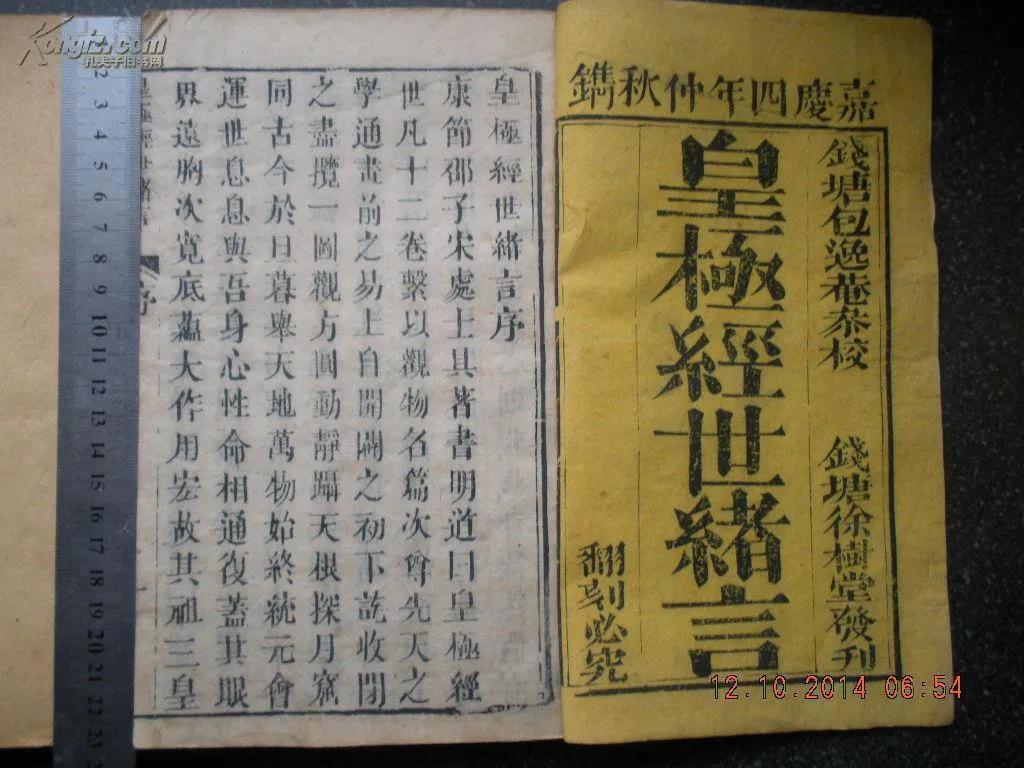 嘉慶四年仲秋鐫
錢塘包逸菴叅校
錢塘徐樹堂發刊
皇極經世緒言
翻刻必究
皇極經世緒言序
康節邵子宋處士其著書明道曰皇極經
世凡十二卷繫以觀物名篇次尊先天之
學通畫前之易上自開闢之初下訖收閉
之盡攬一圖觀方圓動靜躡天根探月窟
同古今於日暮舉天地萬物始終統元會
運世息息與吾身心性命相通復蓋其眼
界遠胸次寬底蘊大作用宏故其祖三皇
皇極經世緒言
序
Kongfz.com
孔夫子旧书网
1 2 3 4 5 6 7 8 9 10 11 12 13 14 15 16 17 18 19 20 21 22 23
12.10.2014 06:54